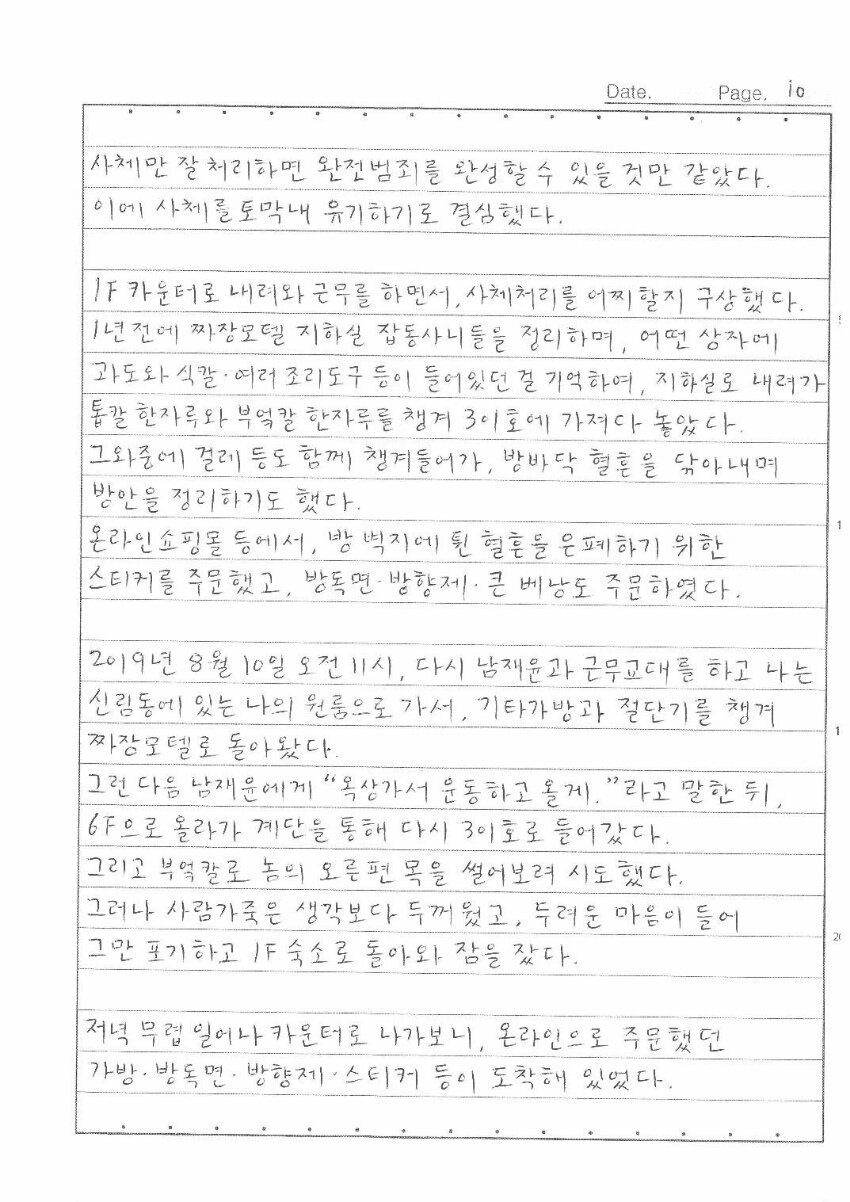 Date. Page. 10
사체만 잘 처리하면 완전범죄를 완성할 수 있을 것만 같았다.
이에 사체를 토막내 유기하기로 결심했다.
1F 카운터로 내려와 근무를 하면서, 사체처리를 어찌할지 구상했다.
1년 전에 짜장모텔 지하실 잡동사니들을 정리하며, 어떤 상자에
과도와 식칼·여러 조리도구 등이 들어있던 걸 기억하여, 지하실로 내려가
톱칼 한자루와 부엌칼 한자루를 챙겨 301호에 가져다 놓았다.
그와중에 걸레 등도 함께 챙겨들어가, 방바닥 혈흔을 닦아내며
방안을 정리하기도 했다.
온라인쇼핑몰 등에서, 방 벽지에 튄 혈흔들을 은폐하기 위한
스티커를 주문했고, 방독면·방향제·큰 베낭도 주문하였다.
2019년 8월 10일 오전 11시, 다시 남재윤과 근무교대를 하고 나는
신림동에 있는 나의 원룸으로 가서, 기타가방과 절단기를 챙겨
짜장모텔로 돌아왔다.
그런 다음 남재윤에게 “옥상가서 운동하고 올게.”라고 말한 뒤,
6F으로 올라가 계단을 통해 다시 301호로 들어갔다.
그리고 부엌칼로 놈의 오른편 목을 썰어보려 시도했다.
그러나 사람가죽은 생각보다 두꺼웠고, 두려운 마음이 들어
그만 포기하고 1F 숙소로 돌아와 잠을 잤다.
저녁 무렵 일어나 카운터로 나가보니, 온라인으로 주문했던
가방·방독면·방향제·스티커 등이 도착해 있었다.